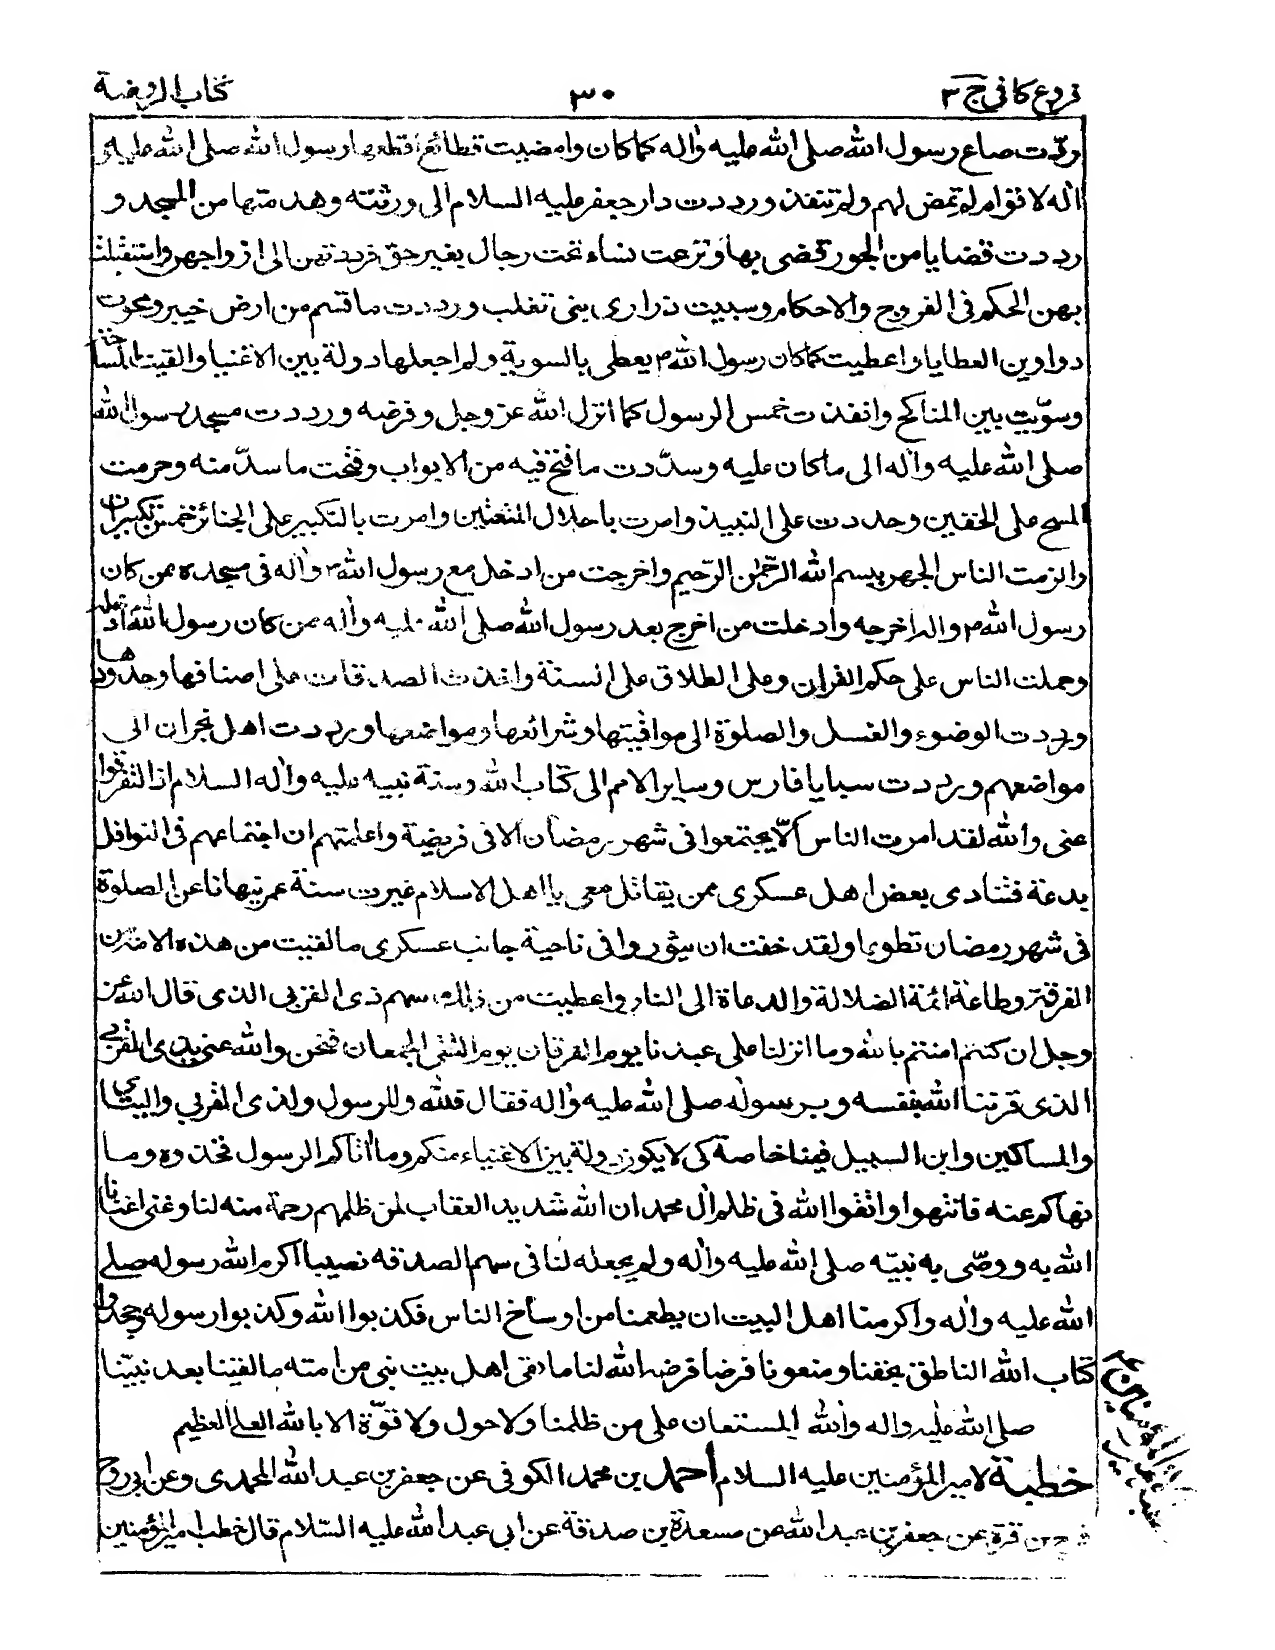 فروع كافى ج ٣
٣٠
كتاب الروضة
رددت صاع رسول الله صلى الله عليه واله كما كان وامضيت قطائع اقطعها رسول الله صلى الله عليه و
اله لاقوام لم تمض لهم ولم تنفذ ورددت دار جعفر عليه السلام الى ورثته وهدمتها من المسجد و
رددت قضايا من الجور قضى بها ونزعت نساء تحت رجال بغير حق فرددتهن الى ازواجهن واستقبلت
بهن الحكم فى الفروج والاحكام وسبيت ذرارى بنى تغلب ورددت ما قسم من ارض خيبر ومحوت
دواوين العطايا واعطيت كما كان رسول الله ص يعطى بالسوية ولم اجعلها دولة بين الاغنيا والقيت المساحة
وسوّيت بين المناكح وانفذت خمس الرسول كما انزل الله عز وجل وفرضه ورددت مسجد رسول الله
صلى الله عليه واله الى ما كان عليه وسدّدت ما فتح فيه من الابواب وفتحت ما سدّ منه وحرمت
المسح على الخفين وحددت على النبيذ وامرت باحلال المتعتين وامرت بالتكبير على الجنائز خمس تكبيرات
والزمت الناس الجهر ببسم الله الرّحمن الرّحيم واخرجت من ادخل مع رسول الله ص واله فى مسجده ممن كان
رسول الله ص واله اخرجه وادخلت من اخرج بعد رسول الله صلى الله عليه واله ممن كان رسول الله ادخله
وحملت الناس على حكم القران وعلى الطلاق على السنّة واخذت الصدقات على اصنافها وحدودها
ورددت الوضوء والغسل والصلوة الى مواقيتها وشرائعها ومواضعها ورددت اهل نجران الى
مواضعهم ورددت سبايا فارس وساير الامم الى كتاب الله وسنة نبيه عليه واله السلام اذا لتفرقوا
عنى والله لقد امرت الناس الّا يجتمعوا فى شهر رمضان الا فى فريضة واعلمتهم ان اجتماعهم فى النوافل
بدعة فتنادى بعض اهل عسكرى ممن يقاتل معى يا اهل الاسلام غيرت سنة عمر ينهانا عن الصلوة
فى شهر رمضان تطوعا ولقد خفت ان يثوروا فى ناحية جانب عسكرى ما لقيت من هذه الامة من
الفرقة وطاعة ائمة الضلالة والدعاة الى النار واعطيت من ذلك سهم ذى القربى الذى قال الله عز
وجل ان كنتم امنتم بالله وما انزلنا على عبدنا يوم الفرقان يوم التقى الجمعان فنحن والله عنى بذى القربى
الذى قرننا الله بنفسه وبرسوله صلى الله عليه واله فقال فلله وللرسول ولذى القربى واليتامى
والمساكين وابن السبيل فينا خاصة كى لا يكون دولة بين الاغنياء منكم وما اتاكم الرسول فخذوه وما
نهاكم عنه فانتهوا واتقوا الله فى ظلم ال محمد ان الله شديد العقاب لمن ظلمهم رحمة منه لنا وغنى اغنانا
الله به ووصّى به نبيّه صلى الله عليه واله ولم يجعله لنا فى سهم الصدقه نصيبا اكرم الله رسوله صلى
الله عليه واله واكرمنا اهل البيت ان يطعمنا من اوساخ الناس فكذبوا الله وكذبوا رسوله وجحدوا
كتاب الله الناطق بحقنا ومنعونا فرضا فرضه الله لنا ما لقى اهل بيت نبى من امته ما لقينا بعد نبيّنا
صلى الله عليه واله والله المستعان على من ظلمنا ولا حول ولا قوّة الا بالله العلى العظيم
خطبة لامير المؤمنين عليه السلام احمد بن محمد الكوفى عن جعفر بن عبد الله المحمدى وعن ابى روح
فرج بن قرة عن جعفر بن عبد الله عن مسعدة بن صدقة عن ابى عبد الله عليه السّلام قال خطب امير المؤمنين